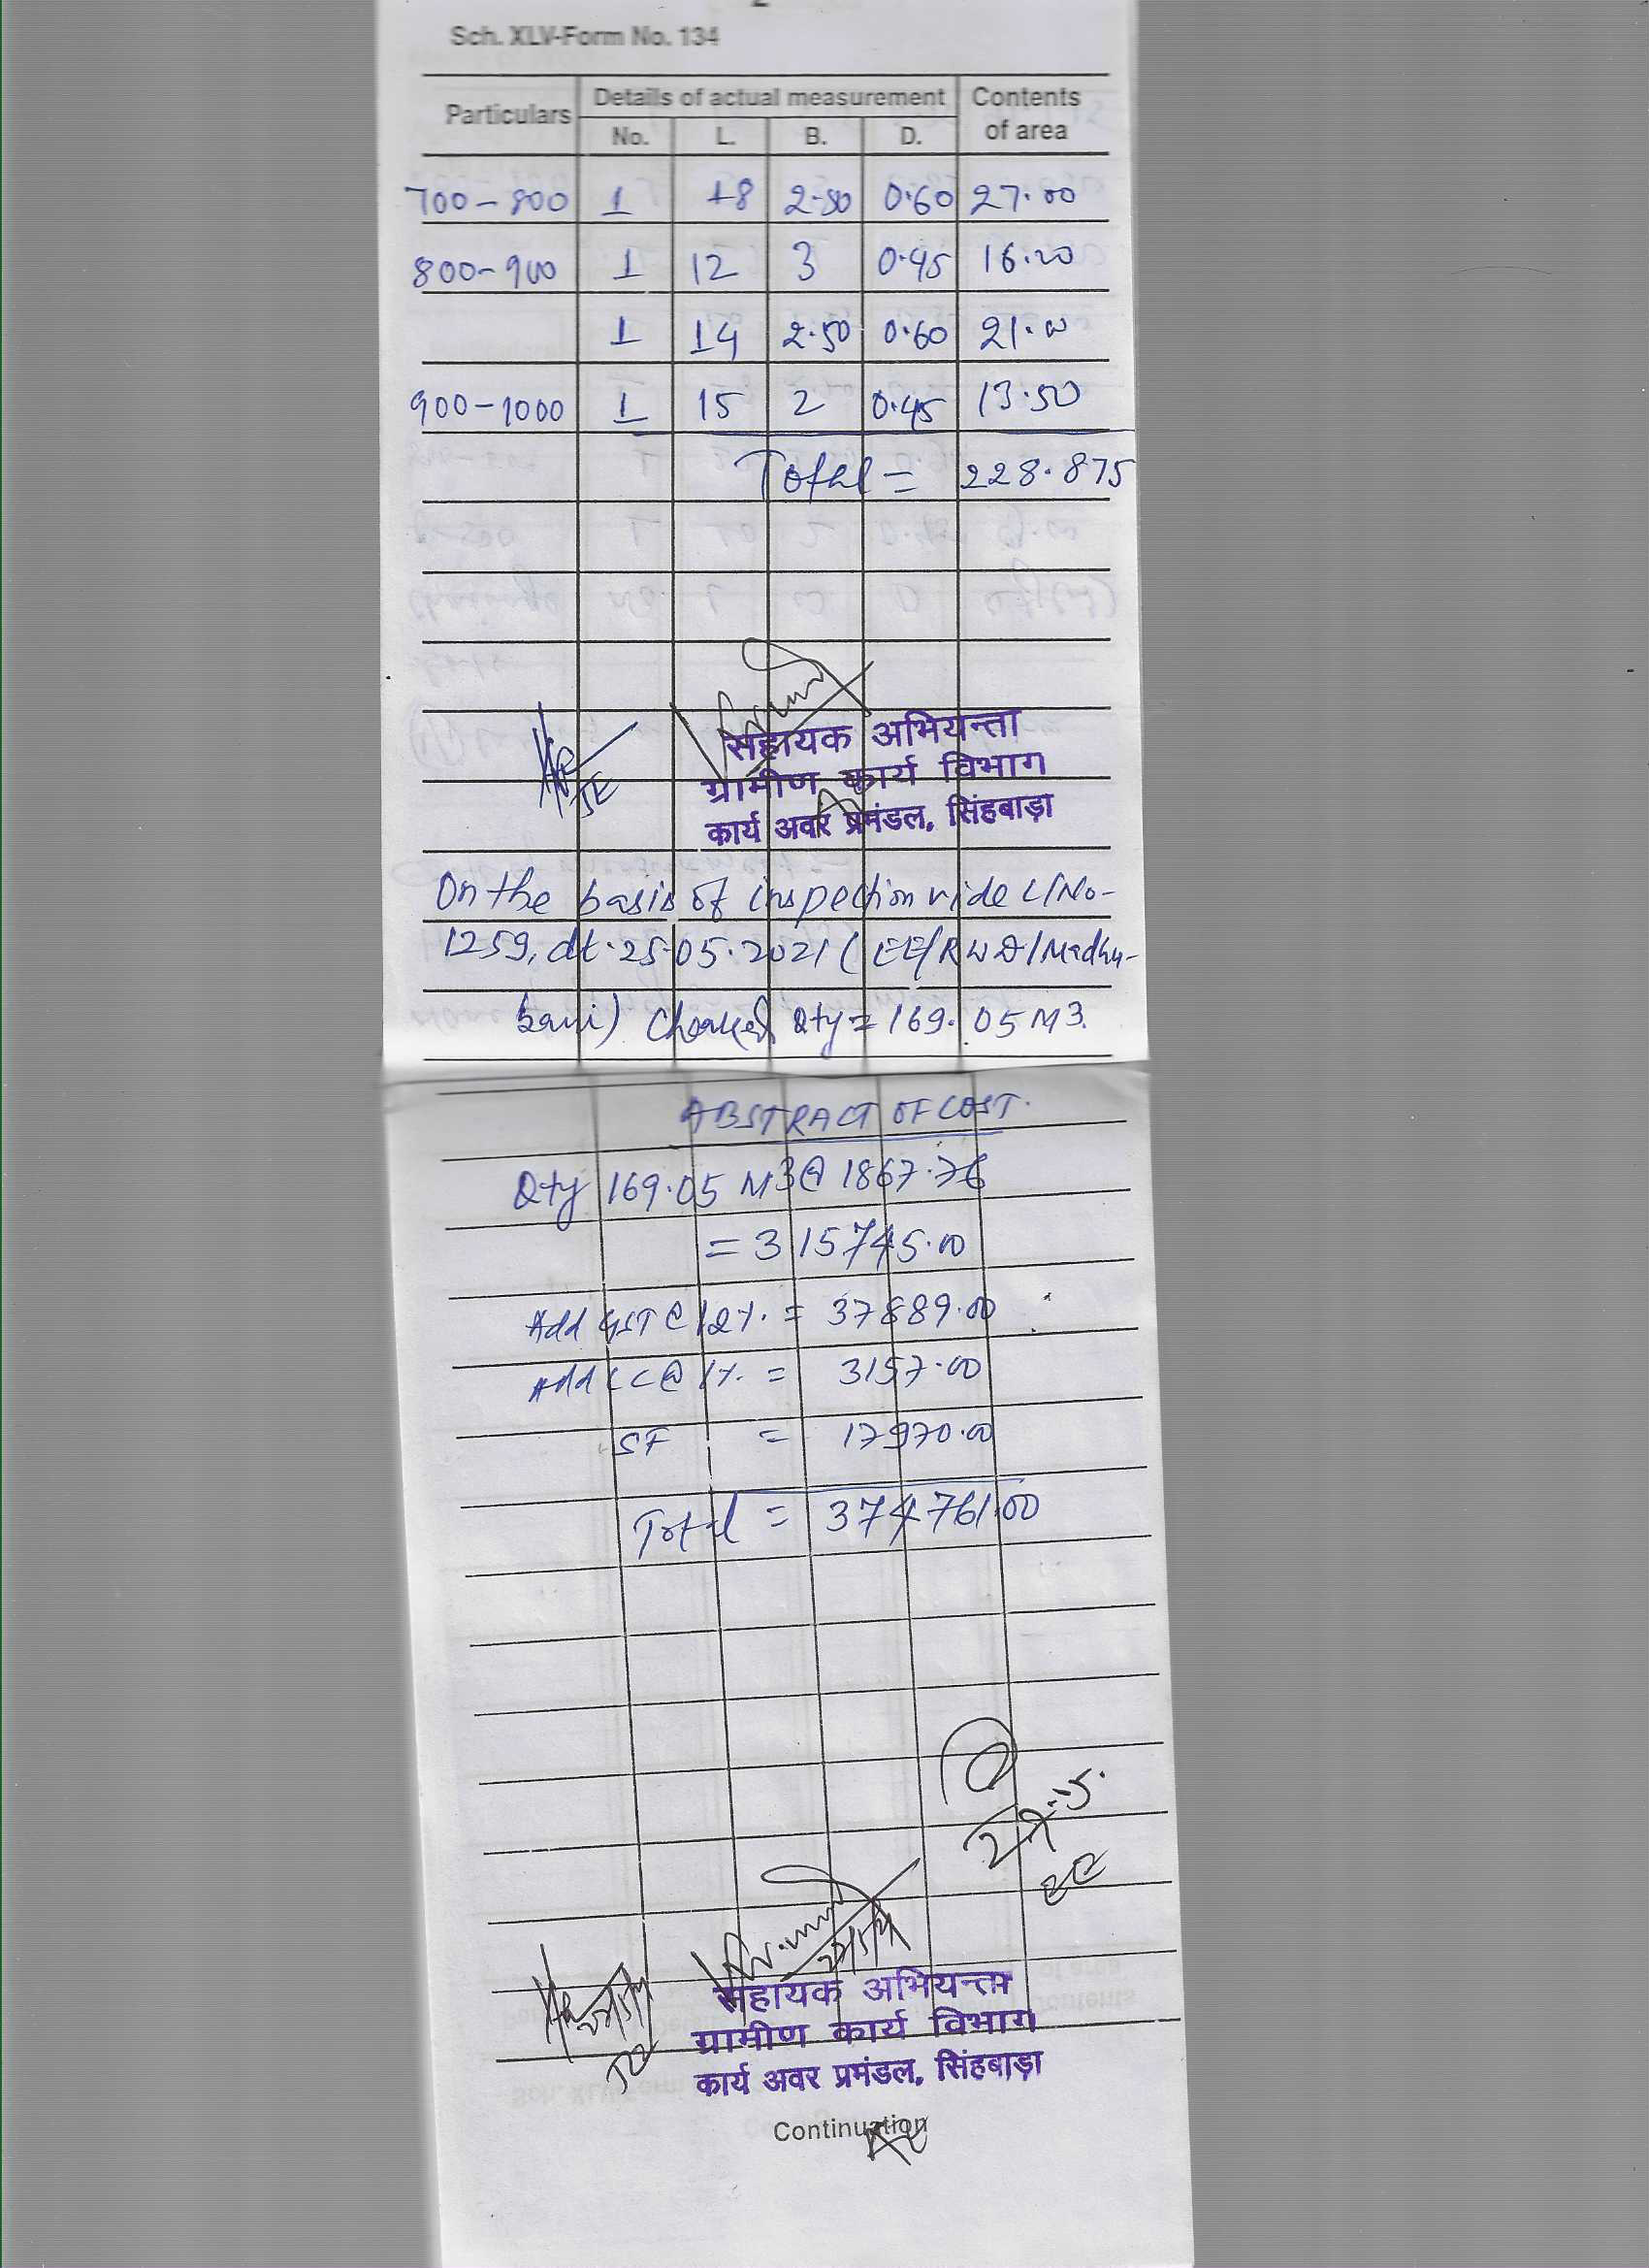 Sch. XLV-Form No. 134
Particulars Details of actual measurement Contents of area
No. L. B. D.
700-800 1 18 2.50 0.60 27.00
800-900 1 12 3 0.45 16.20
1 14 2.50 0.60 21.00
900-1000 1 15 2 0.45 13.50
Total = 228.875
JE
सहायक अभियन्ता
ग्रामीण कार्य विभाग
कार्य अवर प्रमंडल, सिंहबाड़ा
On the basis of inspection vide L/No-
1259, dt. 25.05.2021 (EE/RWD/Madhu-
bani) Qty = 169.05 M3.
ABSTRACT OF COST.
Qty 169.05 M3 @ 1867.76
= 315745.00
Add GST @ 12%. = 37889.00
Add LC @ 1%. = 3157.00
SF = 17970.00
Total = 374761.00
सहायक अभियन्ता
ग्रामीण कार्य विभाग
कार्य अवर प्रमंडल, सिंहबाड़ा
Continuation